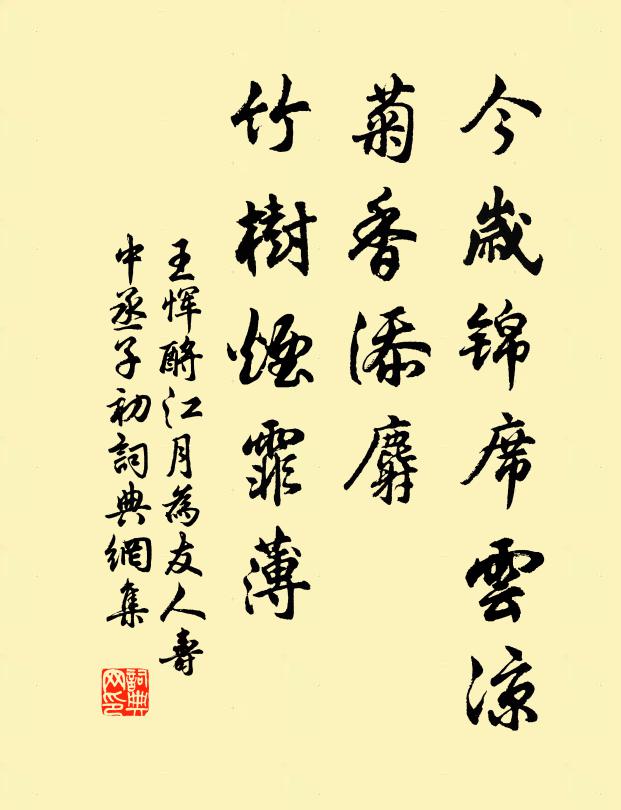 今歲锦席雲涼
菊香添麝
竹樹煙霏薄
王恽酹江月為友人壽
中丞子初詞典網集
詞典网印